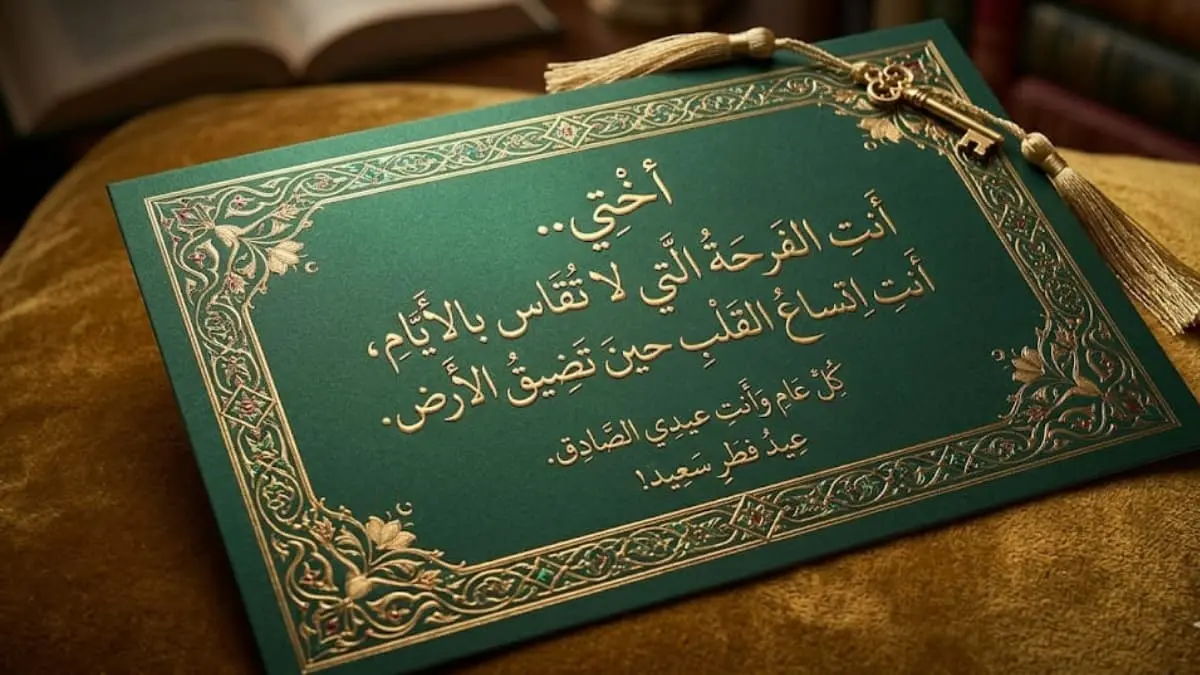 أخْتِي..
أَنتِ الفَرحَةُ الَّتي لا تُقَاس بالأَيَّامِ،
أَنتِ اِتساعُ القَلْبِ حينَ تَضِيقُ الأَرض.
كُلّ عَامِ وَأَنتِ عيدِي الصَّادِق.
عِيدُ فطَرِ سَعِيد!